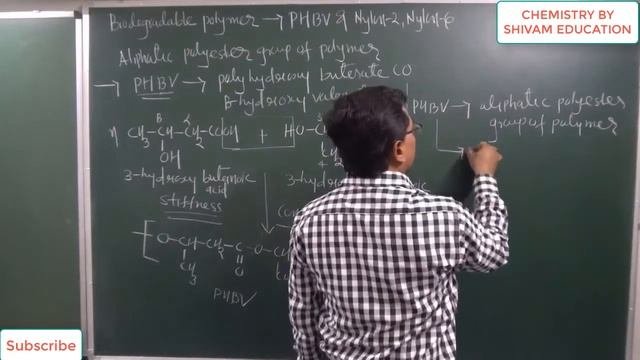 CHEMISTRY BY
SHIVAM EDUCATION
Biodegradable polymer → PHBV & Nylon-2, Nylon-6
Aliphatic polyester group of polymer
→ PHBV → poly hydroxy buterate CO
β-hydroxy
PHBV → aliphatic polyester
group of polymer
n CH3-CH-CH2-COOH + HO-
OH
3-hydroxy butenoic
acid
3-hydroxy
stiffness
O-CH-CH2-C-O-
CH3
O
PHBV
Subscribe